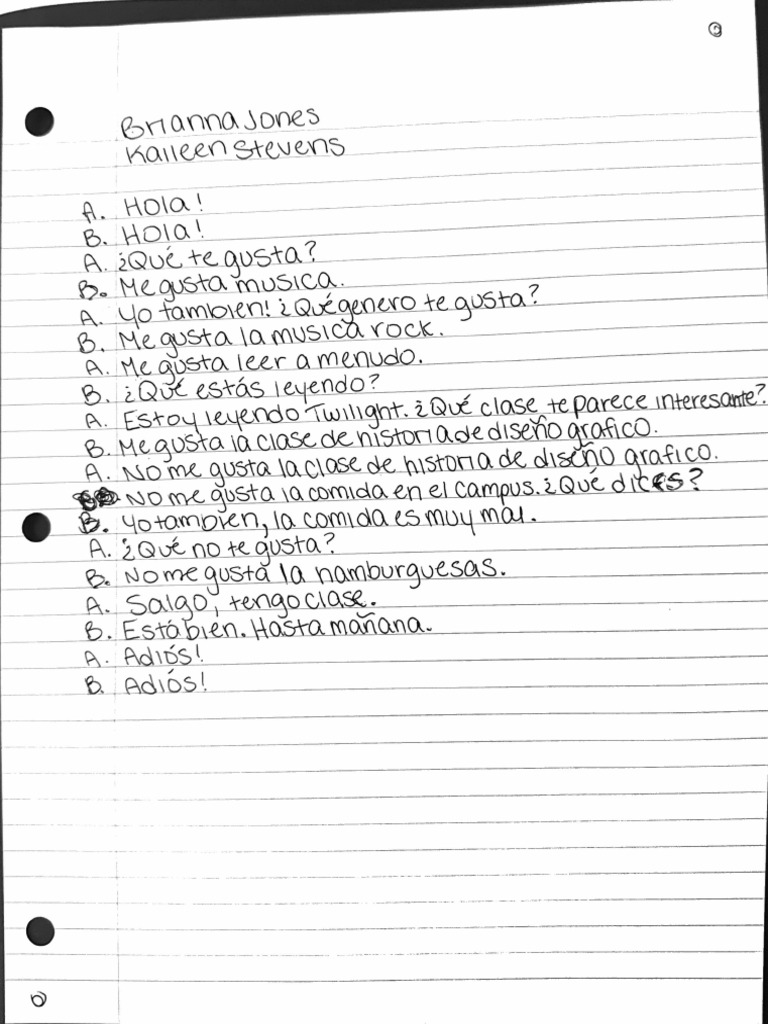 Brianna Jones
Kaileen Stevens
A. Hola!
B. Hola!
A. ¿Qué te gusta?
B. Me gusta musica.
A. Yo tambien! ¿Qué genero te gusta?
B. Me gusta la musica rock.
A. Me gusta leer a menudo.
B. ¿Qué estás leyendo?
A. Estoy leyendo Twilight. ¿Qué clase te parece interesante?
B. Me gusta la clase de historia de diseño grafico.
A. No me gusta la clase de historia de diseño grafico.
No me gusta la comida en el campus. ¿Qué dices?
B. Yo tambien, la comida es muy mal.
A. ¿Qué no te gusta?
B. No me gusta la hamburguesas.
A. Salgo, tengo clase.
B. Está bien. Hasta mañana.
A. Adiós!
B. Adiós!